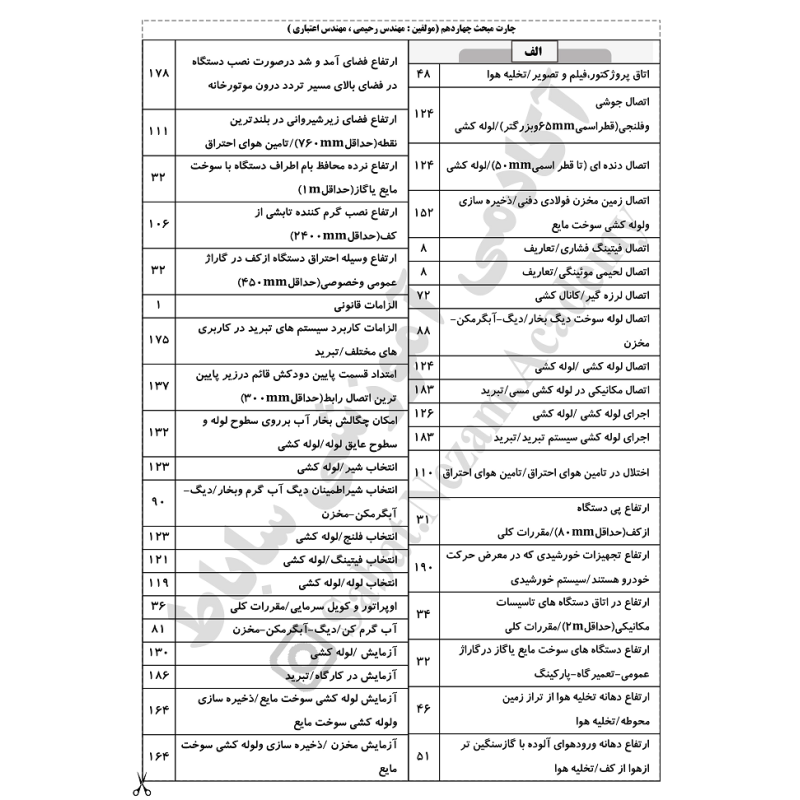 چارت مبحث چهاردهم (مولفین : مهندس رحیمی ، مهندس اعتباری )
الف
اتاق پروژکتور،فیلم و تصویر/تخلیه هوا ۴۸
اتصال جوشی
وفلنجی(قطراسمی۶۵mmوبزرگتر)/لوله کشی ۱۲۴
اتصال دنده ای (تا قطر اسمی۵۰mm)/لوله کشی ۱۲۴
اتصال زمین مخزن فولادی دفنی/ذخیره سازی
ولوله کشی سوخت مایع ۱۵۲
اتصال فیتینگ فشاری/تعاریف ۸
اتصال لحیمی موئینگی/تعاریف ۸
اتصال لرزه گیر/کانال کشی ۷۲
اتصال لوله سوخت دیگ بخار/دیگ-آبگرمکن-
مخزن ۸۸
اتصال لوله کشی /لوله کشی ۱۲۴
اتصال مکانیکی در لوله کشی مسی/تبرید ۱۸۳
اجرای لوله کشی /لوله کشی ۱۲۶
اجرای لوله کشی سیستم تبرید/تبرید ۱۸۳
اختلال در تامین هوای احتراق/تامین هوای احتراق ۱۱۰
ارتفاع پی دستگاه
ازکف(حداقل۸۰mm)/مقررات کلی ۳۱
ارتفاع تجهیزات خورشیدی که در معرض حرکت
خودرو هستند/سیستم خورشیدی ۱۹۰
ارتفاع در اتاق دستگاه های تاسیسات
مکانیکی(حداقل۲m)/مقررات کلی ۳۴
ارتفاع دستگاه های سوخت مایع یاگاز درگاراژ
عمومی-تعمیرگاه-پارکینگ ۳۲
ارتفاع دهانه تخلیه هوا از تراز زمین
محوطه/تخلیه هوا ۴۶
ارتفاع دهانه ورودهوای آلوده با گازسنگین تر
ازهوا از کف/تخلیه هوا ۵۱
ارتفاع فضای آمد و شد درصورت نصب دستگاه
در فضای بالای مسیر تردد درون موتورخانه ۱۷۸
ارتفاع فضای زیرشیروانی در بلندترین
نقطه(حداقل۷۶۰mm)/تامین هوای احتراق ۱۱۱
ارتفاع نرده محافظ بام اطراف دستگاه با سوخت
مایع یاگاز(حداقل۱m) ۳۲
ارتفاع نصب گرم کننده تابشی از
کف(حداقل۲۴۰۰mm) ۱۰۶
ارتفاع وسیله احتراق دستگاه ازکف در گاراژ
عمومی وخصوصی(حداقل۴۵۰mm) ۳۲
الزامات قانونی ۱
الزامات کاربرد سیستم های تبرید در کاربری
های مختلف/تبرید ۱۷۵
امتداد قسمت پایین دودکش قائم درزیر پایین
ترین اتصال رابط(حداقل۳۰۰mm) ۱۳۷
امکان چگالش بخار آب برروی سطوح لوله و
سطوح عایق لوله/لوله کشی ۱۳۲
انتخاب شیر/لوله کشی ۱۲۳
انتخاب شیراطمینان دیگ آب گرم وبخار/دیگ-
آبگرمکن-مخزن ۹۰
انتخاب فلنج/لوله کشی ۱۲۳
انتخاب فیتینگ/لوله کشی ۱۲۱
انتخاب لوله/لوله کشی ۱۱۹
اوپراتور و کویل سرمایی/مقررات کلی ۳۶
آب گرم کن/دیگ-آبگرمکن-مخزن ۸۱
آزمایش /لوله کشی ۱۳۰
آزمایش در کارگاه/تبرید ۱۸۶
آزمایش لوله کشی سوخت مایع/ذخیره سازی
ولوله کشی سوخت مایع ۱۶۴
آزمایش مخزن /ذخیره سازی ولوله کشی سوخت
مایع ۱۶۴
آکادمی آموزشی ساباط
Sabat.Nezam.Academy